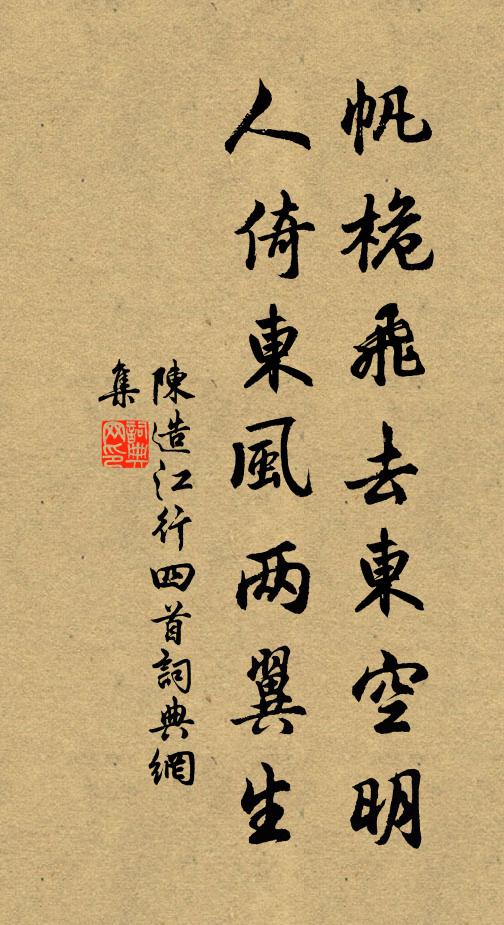 帆桅飛去東空明
人倚東風两翼生
陳造江行四首詞典網
集
詞典網印